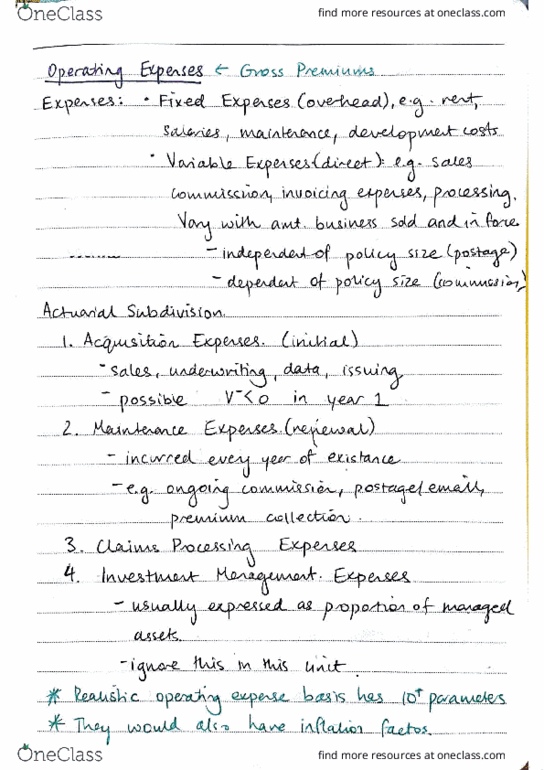 OneClass find more resources at oneclass.com
Operating Expenses ← Gross Premiums
Expenses: • Fixed Expenses (overhead), e.g. rent,
salaries, maintenance, development costs
• Variable Expenses (direct): e.g. sales
commission, invoicing expenses, processing.
Vary with amt. business sold and in force
- independent of policy size (postage)
- dependent of policy size (commission)
Actuarial Subdivision.
1. Acquisition Expenses. (initial)
- sales, underwriting, data, issuing
- possible V<0 in year 1
2. Maintenance Expenses (renewal)
- incurred every year of existance
- e.g. ongoing commission, postage/emails,
premium collection.
3. Claims Processing Expenses
4. Investment Management. Expenses
- usually expressed as proportion of managed
assets.
- ignore this in this unit.
* Realistic operating expense basis has 10+ parameters
* They would also have inflation factos.
OneClass find more resources at oneclass.com